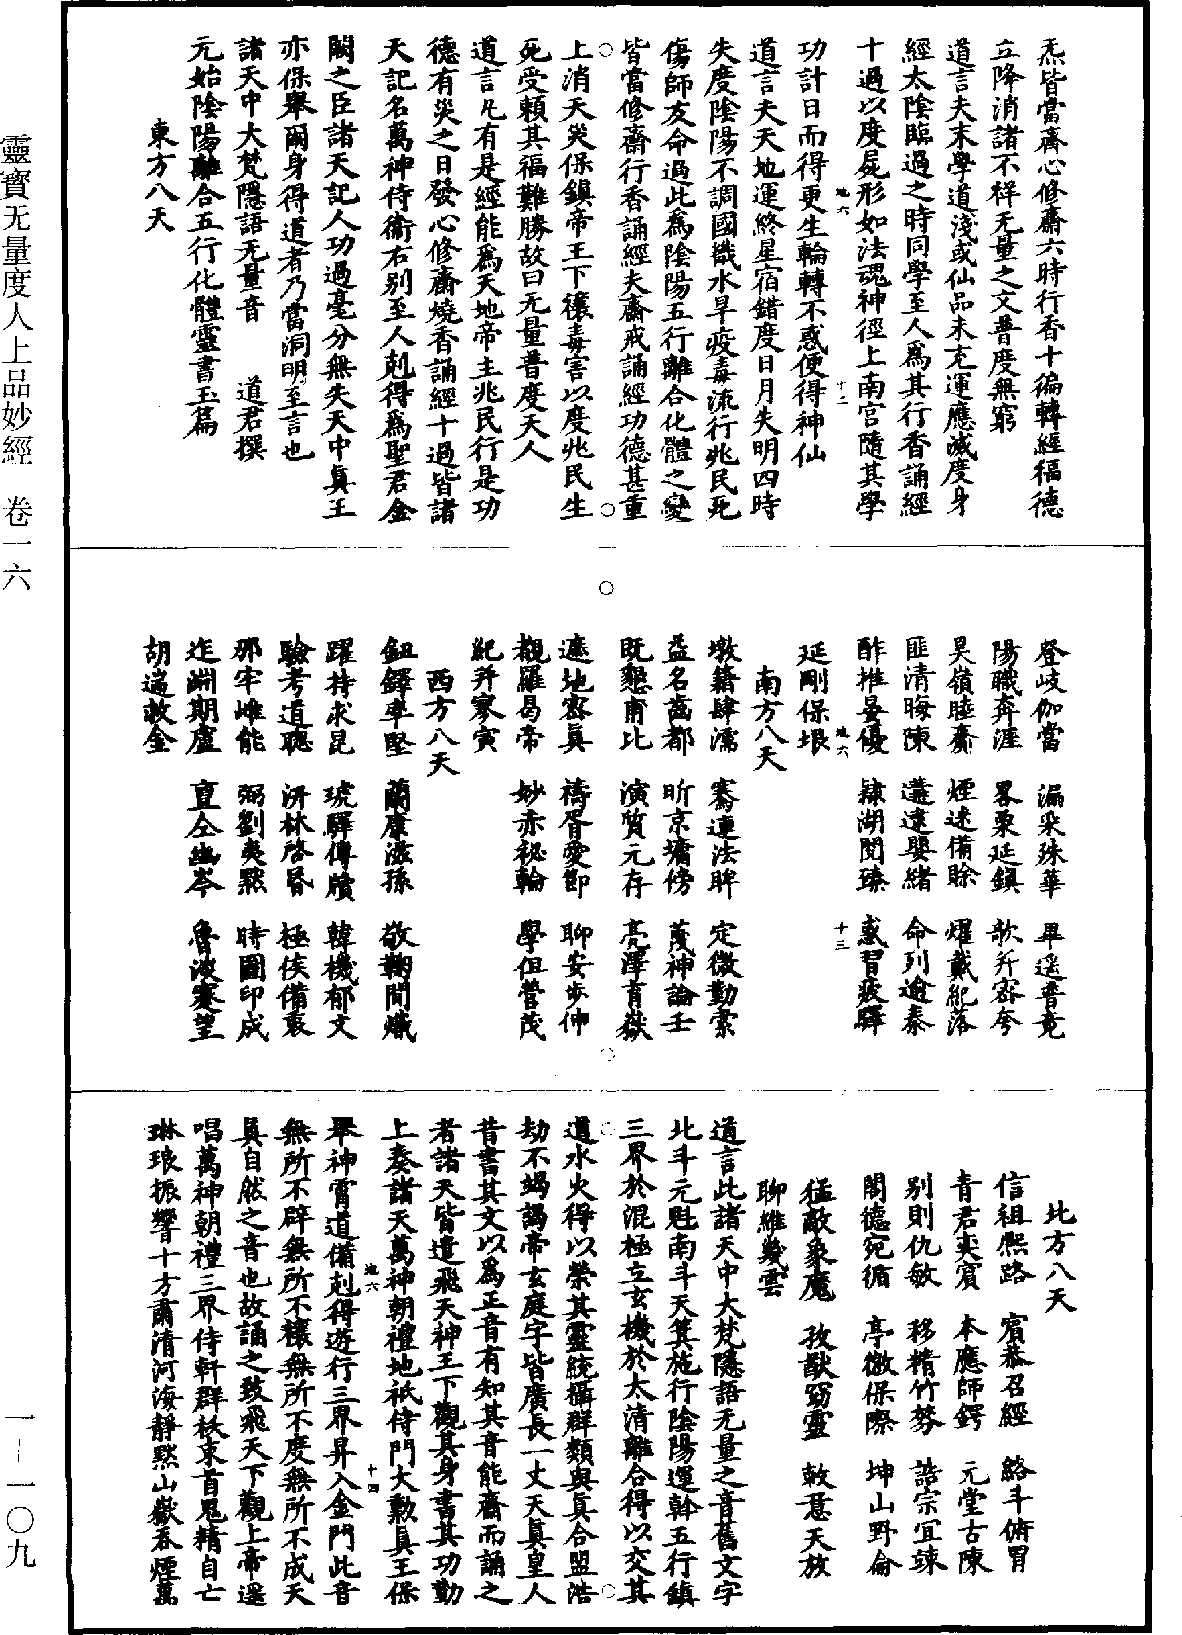 炁皆當齋心修齋六時行香十徧轉經福德
立降消諸不祥无量之文普度無窮
道言夫末學道淺或仙品未充運應滅度身
經太陰臨過之時同學至人爲其行香誦經
十過以度屍形如法魂神徑上南宮隨其學
功計日而得更生輪轉不惑便得神仙
地六
十二
道言夫天地運終星宿錯度日月失明四時
失度陰陽不調國機水旱疫毒流行兆民死
傷師友命過此爲陰陽五行離合化體之變
皆當修齋行香誦經夫齋戒誦經功德甚重
上消天災保鎮帝王下禳毒害以度兆民生
死受賴其福難勝故曰无量普度天人
道言凡有是經能爲天地帝主兆民行是功
德有災之日發心修齋燒香誦經十過皆諸
天記名萬神侍衛右別至人剋得爲聖君金
闕之臣諸天記人功過毫分無失天中真王
亦保舉爾身得道者乃當洞明至言也
諸天中大梵隱語无量音　道君撰
元始陰陽離合五行化體靈書玉篇
東方八天
登岐伽當　漏采殊華　畢遥普竟
陽職奔涯　畧栗延鎮　歌斤容夸
昊嶺睦齋　煙迷備賒　燿戴紀落
匪清晦陳　遘逺嬰緒　命列逾泰
酢推晏優　隸湖閲臻　惑習疲驛
延剛保垠
地六
十三
南方八天
墩籍肆濡　騫連法睥　定微勤索
益名啚都　昕京墉傍　蔑神論壬
既懇甫比　演質元存　亮澤育嶽
遮地密真　禱胥愛節　聊安步仲
覩羅曷帝　妙赤秘輪　學但營茂
紀并寥寅
西方八天
鈕鐸率堅　蘭康滋孫　敬鞠間熾
躍持求昆　琥驛傅牘　韓機郁文
驗考道聰　汧林啓昏　極俟備裹
那牢雌能　弼劉夷黙　時圖印成
迮淵期廬　亶仝幽岑　魯汲蹇望
胡遄救金
北方八天
信祖熙路　賔恭召經　絡斗俯胃
青君奭賔　本應師鍔　元堂古陳
别則仇敏　移精竹勞　誥宗宜竦
閣德宛循　亭徽保際　坤山野侖
猛敵象魔　孜猷窈靈　敕意天放
聊維幾雲
道言此諸天中大梵隱語无量之音舊文字
北斗元魁南斗天箕施行陰陽運斡五行鎮
三界於混極立玄機於太清離合得以交其
道水火得以榮其靈統攝群類與真合盟浩
劫不竭謁帝玄庭字皆廣長一丈天真皇人
昔書其文以爲正音有知其音能齋而誦之
者諸天皆遣飛天神王下觀其身書其功勤
上奏諸天萬神朝禮地祇侍門大勲真王保
地六
十四
舉神霄道備剋得遊行三界昇入金門此音
無所不辟無所不禳無所不度無所不成天
真自然之音也故誦之致飛天下觀上帝遥
唱萬神朝禮三界侍軒群妖束首鬼精自亡
琳琅振響十方肅清河海靜默山嶽吞煙萬
靈寳无量度人上品妙經　卷一六
一——一〇九